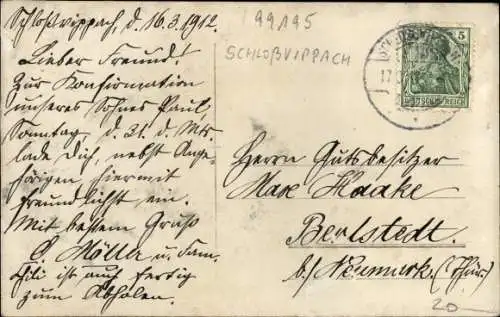 Schloßvippach, d. 16.3.1912.
Lieber Freund!
Zur Konfirmation
unseres Sohnes Paul,
Sonntag, d. 31. d. Mts.
lade Dich, nebst Ange-
hörigen hiermit
freundlichst ein.
Mit bestem Gruß
Möller u. Fam.
ist auch fertig
zum Abholen.
99195
SCHLOßVIPPACH
5
DEUTSCHES REICH
17
Herrn Gutsbesitzer
Max Haake
Berlstedt.
b/ Neumark. (Thür.)
20